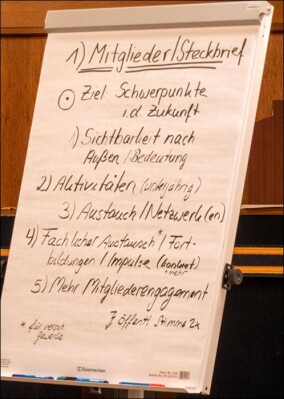 1) Mitglieder/Steckbrief
Ziel Schwerpunkte
i.d. Zukunft
1) Sichtbarkeit nach
Außen / Bedeutung
2) Aktivitäten (unterjährig)
3) Austausch / Netzwerk(en)
4) Fachlicher Austausch* / Fort-
bildungen / Impulse (konkret
mehr
5) Mehr Mitgliederengagement
öffentl Stimme 2x
* für versch
Gewerke